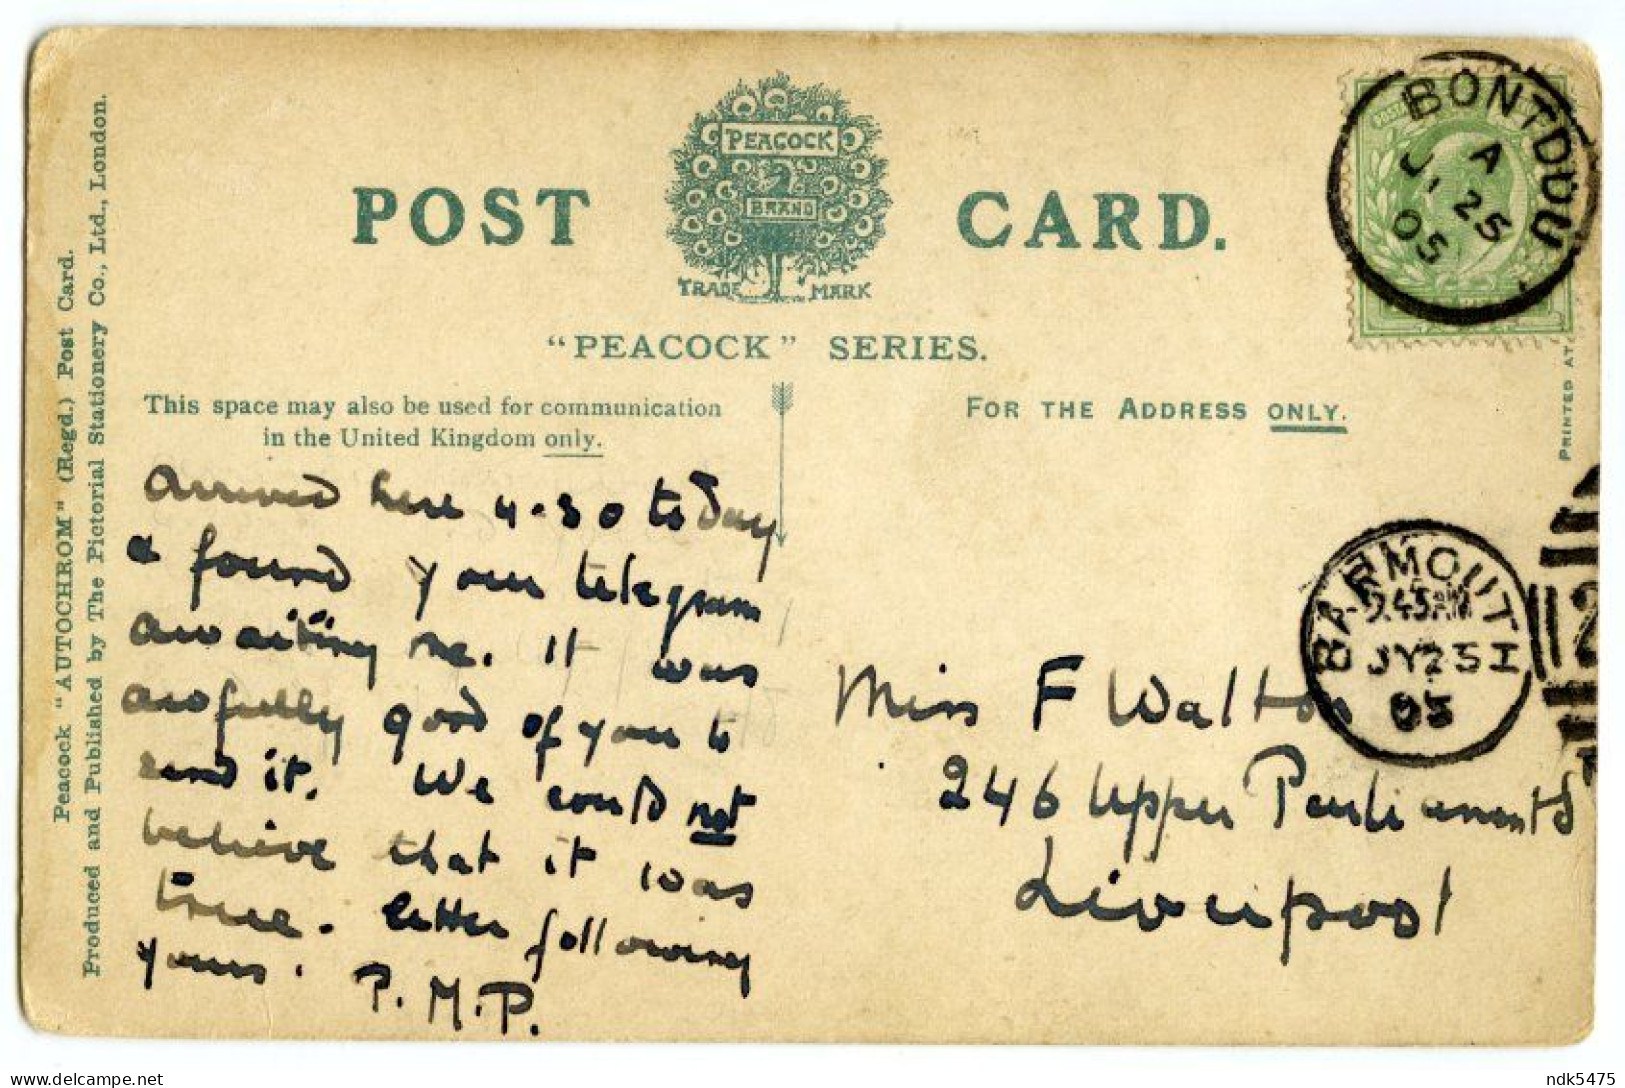 POST CARD.
PEACOCK
BRAND
TRADE MARK
"PEACOCK" SERIES.
This space may also be used for communication
in the United Kingdom only.
FOR THE ADDRESS ONLY.
Peacock "AUTOCHROM" (Regd.) Post Card.
Produced and Published by The Pictorial Stationery Co., Ltd., London.
PRINTED AT
BONTDDU
A
JY 25
05
BARMOUTH
9.45AM
JY 25
05
2
Arrived here 4.30 today
& found your telegram
awaiting me. It was
awfully good of you to
send it. We could not
believe that it was
true. letter following
yours. P.M.P.
Miss F Walton
246 Upper Parliament St
Liverpool
ndk5475